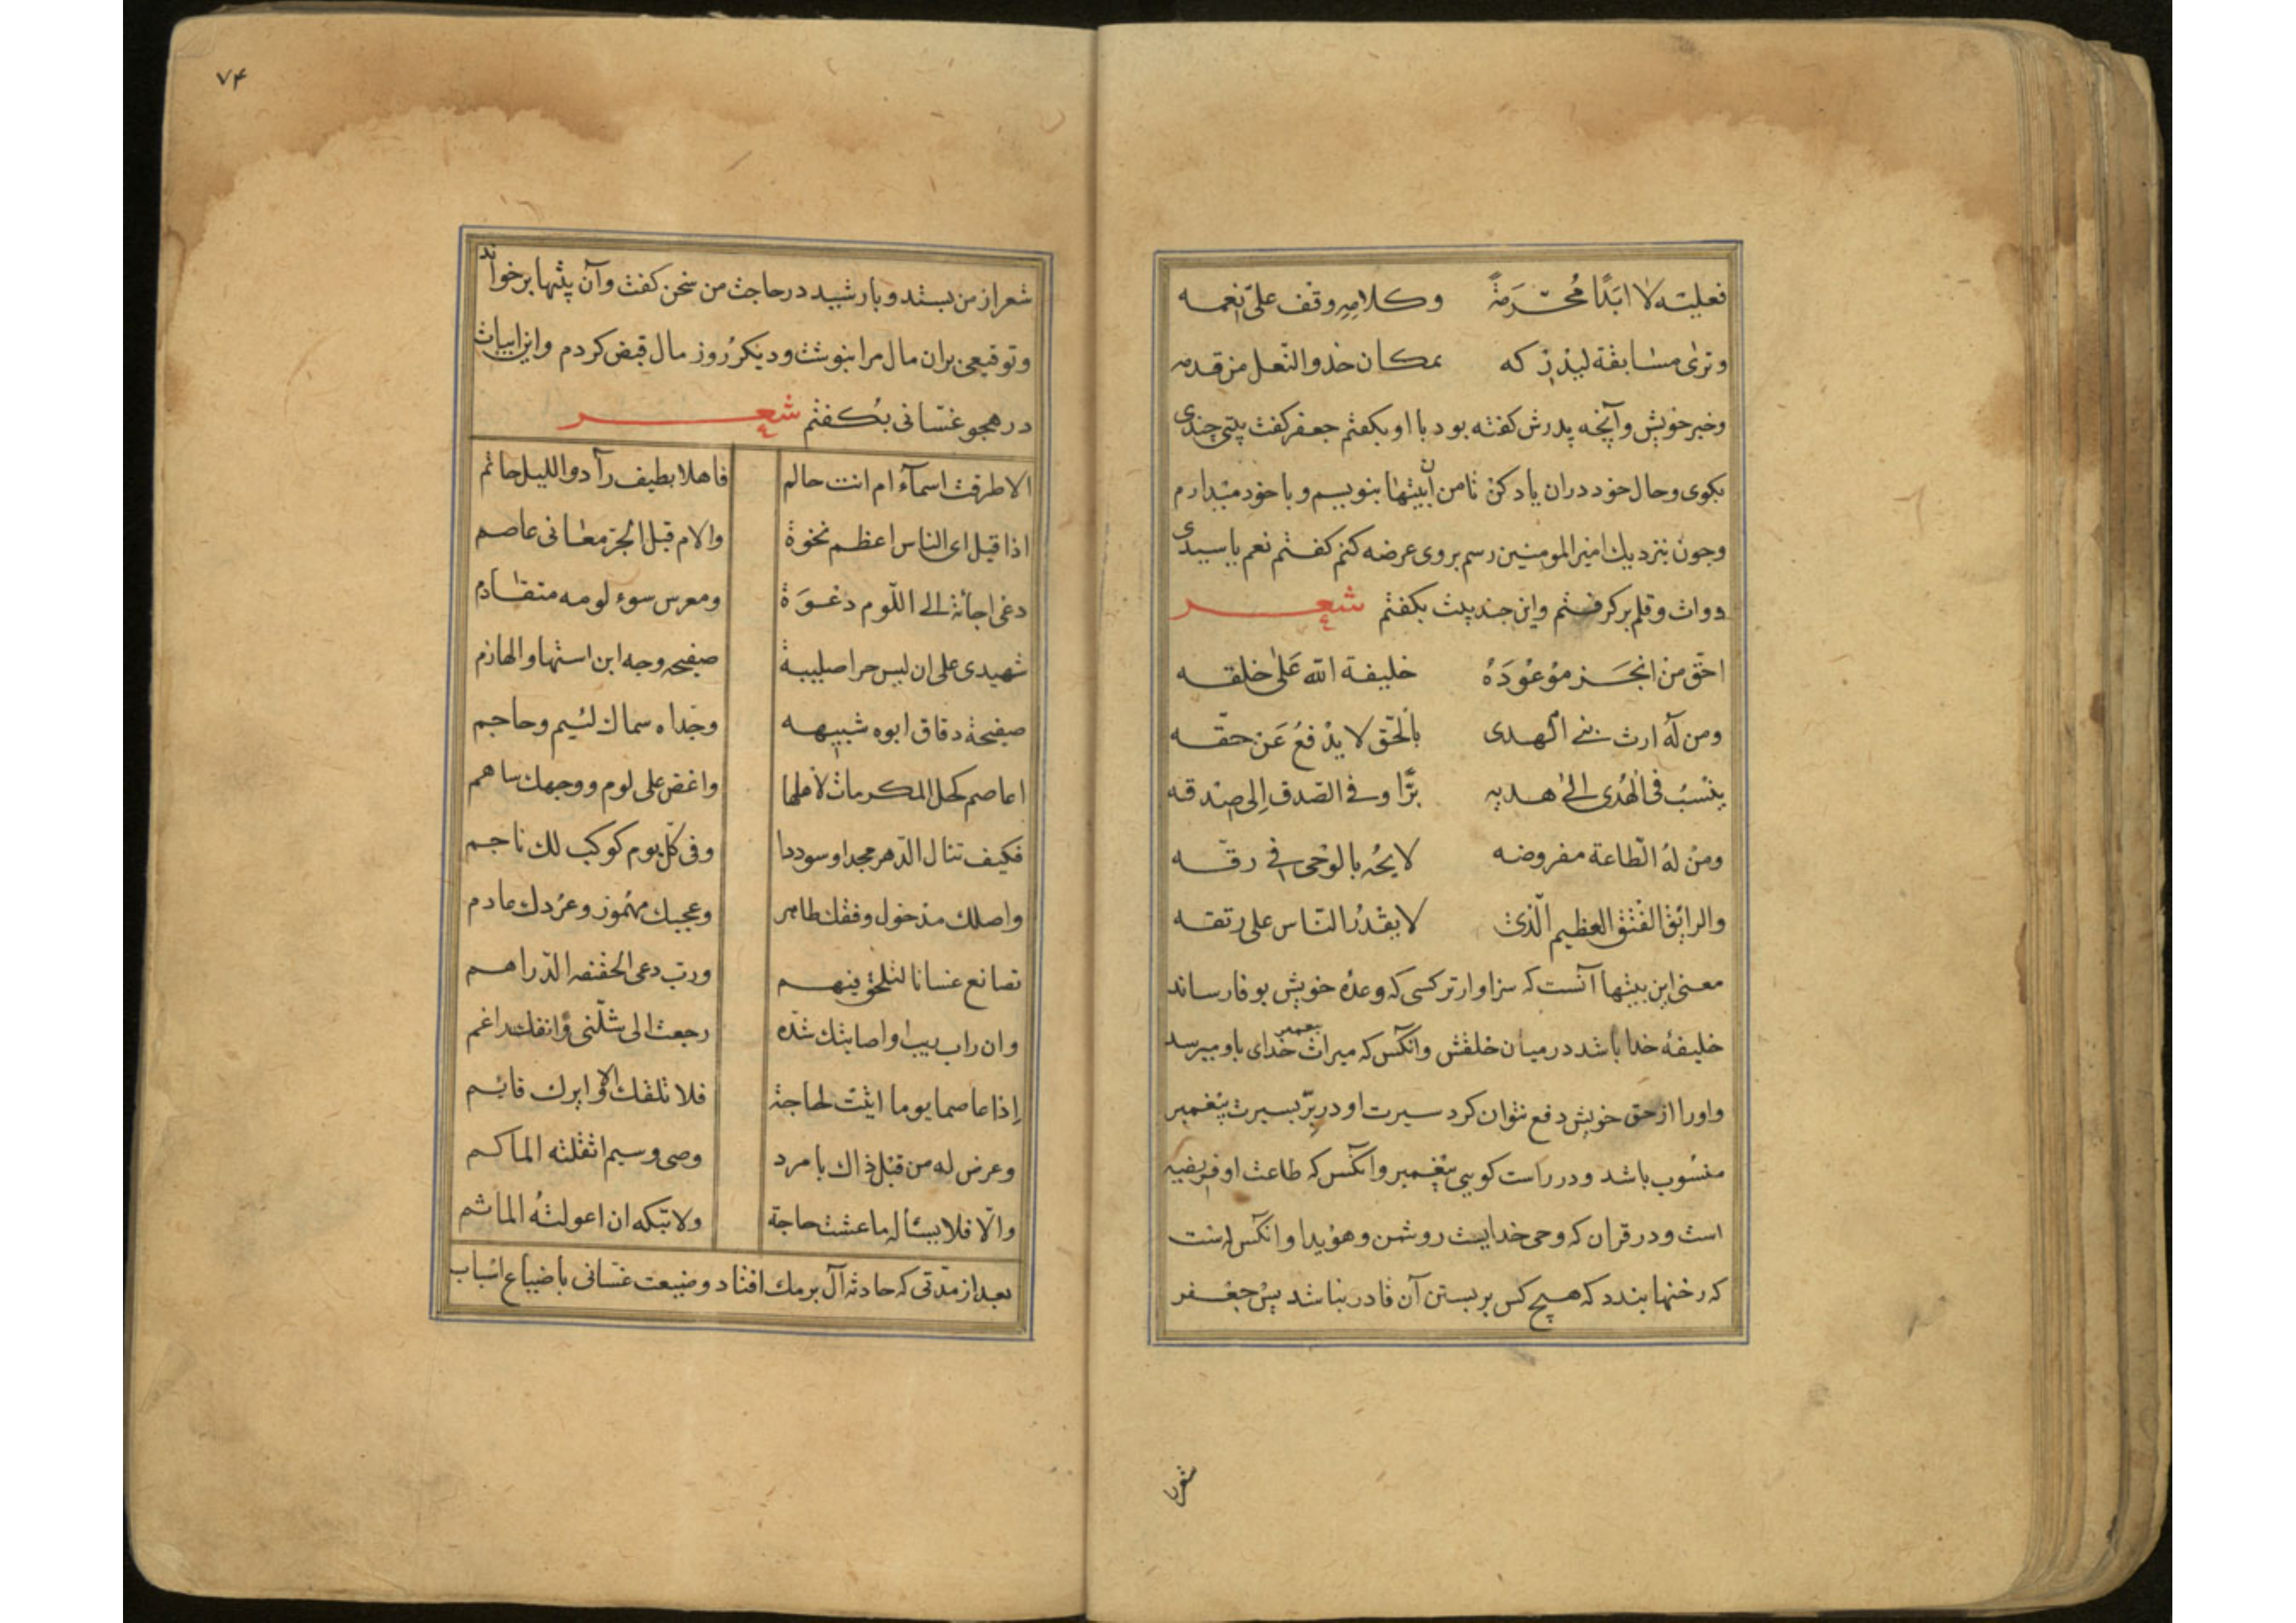 فعلیته لا ابدًا مُحَرَمة وکلامه وقف علی نعمه
وتری مسابقة لیدرکه بمکان حذو النعل من قدمه
وخبر خویش وآنچه پدرش کفته بود با او بکفتم جعفر کفت بیتی چندی
بکوی وحال خود دران یاد کن تا من آن بیتها بنویسم وبا خود میدارم
وچون بنزدیك امیر المومنین رسم بروی عرضه کنم کفتم نعم یا سیدی
دوات وقلم بر کرفتم واین چند بیت بکفتم شعر
احقّ من انجَز موعُودَهُ خلیفة الله عَلیٰ خلقه
ومن لهُ ارث بنی الهدی بالحقّ لا یدْفعُ عَن حقّه
ینسبُ فی الهُدی الیٰ هدیه برًّا وفی الصّدق اِلی صدقه
ومن لهُ الطاعة مفروضه لا یحُه بالوحی فی رقّه
والراتق الفتق العظیم الّذی لا یقدرُ النّاس علی رتقه
معنی این بیتها آنست که سزاوارتر کسی که وعدهٔ خویش بوفا رساند
خلیفهٔ خدا باشد در میان خلقش وآنکس که میراث پیغمبر خدای باو میرسد
واورا از حق خویش دفع نتوان کرد سیرت او در برّ بسیرت پیغمبر
منسُوب باشد ودر راست کویی پیغمبر وآنکس که طاعت او فریضه
است ودر قران که وحی خدایست روشن وهویدا وآنکس است
که رخنها بندد که هیچ کس بر بستن آن قادر نباشد پس جعفر
شعر را
۷۴
شعر از من بستد وبا رشید در حاجت من سخن کفت وآن بیتها بر خواند
وتوقیعی بران مال مرا بنوشت ودیکر روز مال قبض کردم واین ابیات
در هجو غسّانی بکفتم شعر
الا طرقت اسمآء ام انت حالم فاهلا بطیف رآدو اللیل حاثم
اذا قیل ای الناس اعظم نخوة والام قبل الجر معانی عاصم
دعی اجأته الی اللّوم دعوَة ومعرس سوء لومه متقادم
شهیدی علی ان لیس حرا صلیبة صفیحه وجه ابن استها واللهازم
صفیحة دقاق ابوه شبیهه وجداه سماك لئیم وحاجم
اعاصم خل المکرمات لاهلها واغض علی لوم ووجهك ساهم
فکیف تنال الدّهر مجدا وسوددا وفی کلّ یوم کوکب لك ناجم
واصلك مدخول وفقك طاهر وعجبك مهموز وعردك عادم
تصانع غسانا لتلحق فیهم وربّ دعی الحقته الدّراهم
وان راب ریب او اصابتك شدّه رجعت الی شلّنی وانفك راغم
اِذا عاصما یوما اتیت لحاجة فلا تلقك الا وایرك قایم
وعرض له من قبل ذاك بامرد وصی وسیم اثقلته الماکم
والّا فلا یسأله ما عشت حاجة ولا تبکه ان اعولتهُ الماثم
بعد از مدّتی که حادثه آل برمك افتاد وضیعت غسّانی با ضیاع اسباب